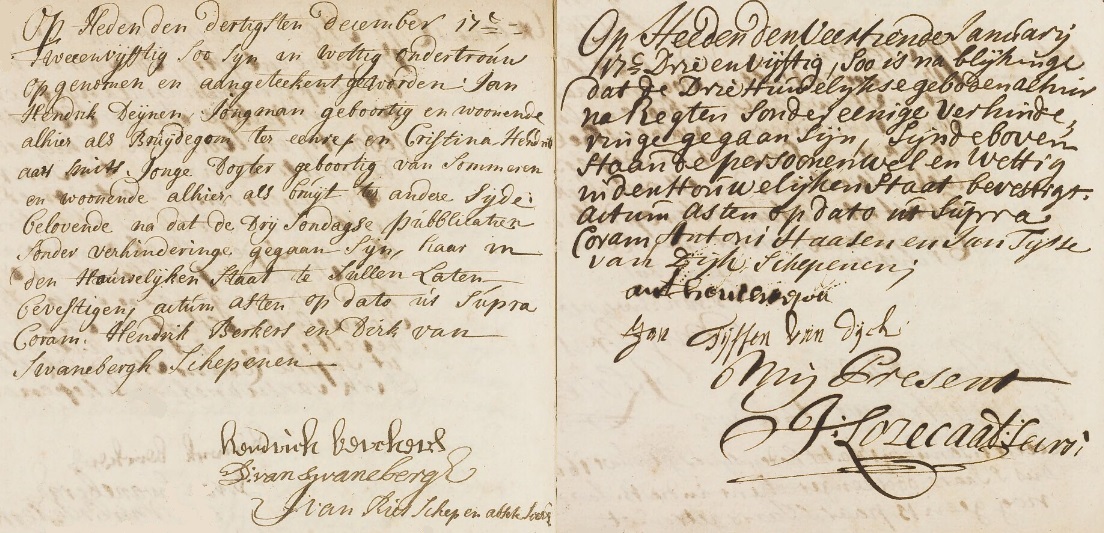 Op Heden den dertigsten december 17c
tweeenvijftig Soo Syn in wettig ondertrouw
opgenomen en aangeteekent geworden Jan
Hendrik Deijnen Jongman geboortig en woonende
alhier als Bruijdegom ter eenre en Cristina Hendrik
aart smits Jonge Dogter geboortig van Sommeren
en woonende alhier als bruijt te andere Sijde
belovende na dat de Drij Sondagse publicatien
Sonder verhinderinge gegaan Syn, haar in
den Houwelijken Staat te Sullen Laten
bevestigen, actum asten op dato uts Supra
Coram. Hendrik Berkers en Dirk van
Swanebergh Schepenen
Hendrick berckers
D: van Swanebergh
J van Schepen absente Secr
Op Heeden den Veertiende Januarij
17c Drie en Vijftig, Soo is na blijkinge
dat de Drie Huwelijkse gebooden alhier
na Regten Sonder eenige verhinde,
ringe gegaan Sijn, Sijnde boven
Staande persoonen wel en Wettig
in den Houwelijken Staat bevestigt.
Actum Asten op dato ut Supra
Coram Antoni Haasen en Jan Tijsse
van Dijk Schepenen;
Jan Tijssen van dijck
Mij Present
J: Losecaat: Secrs: